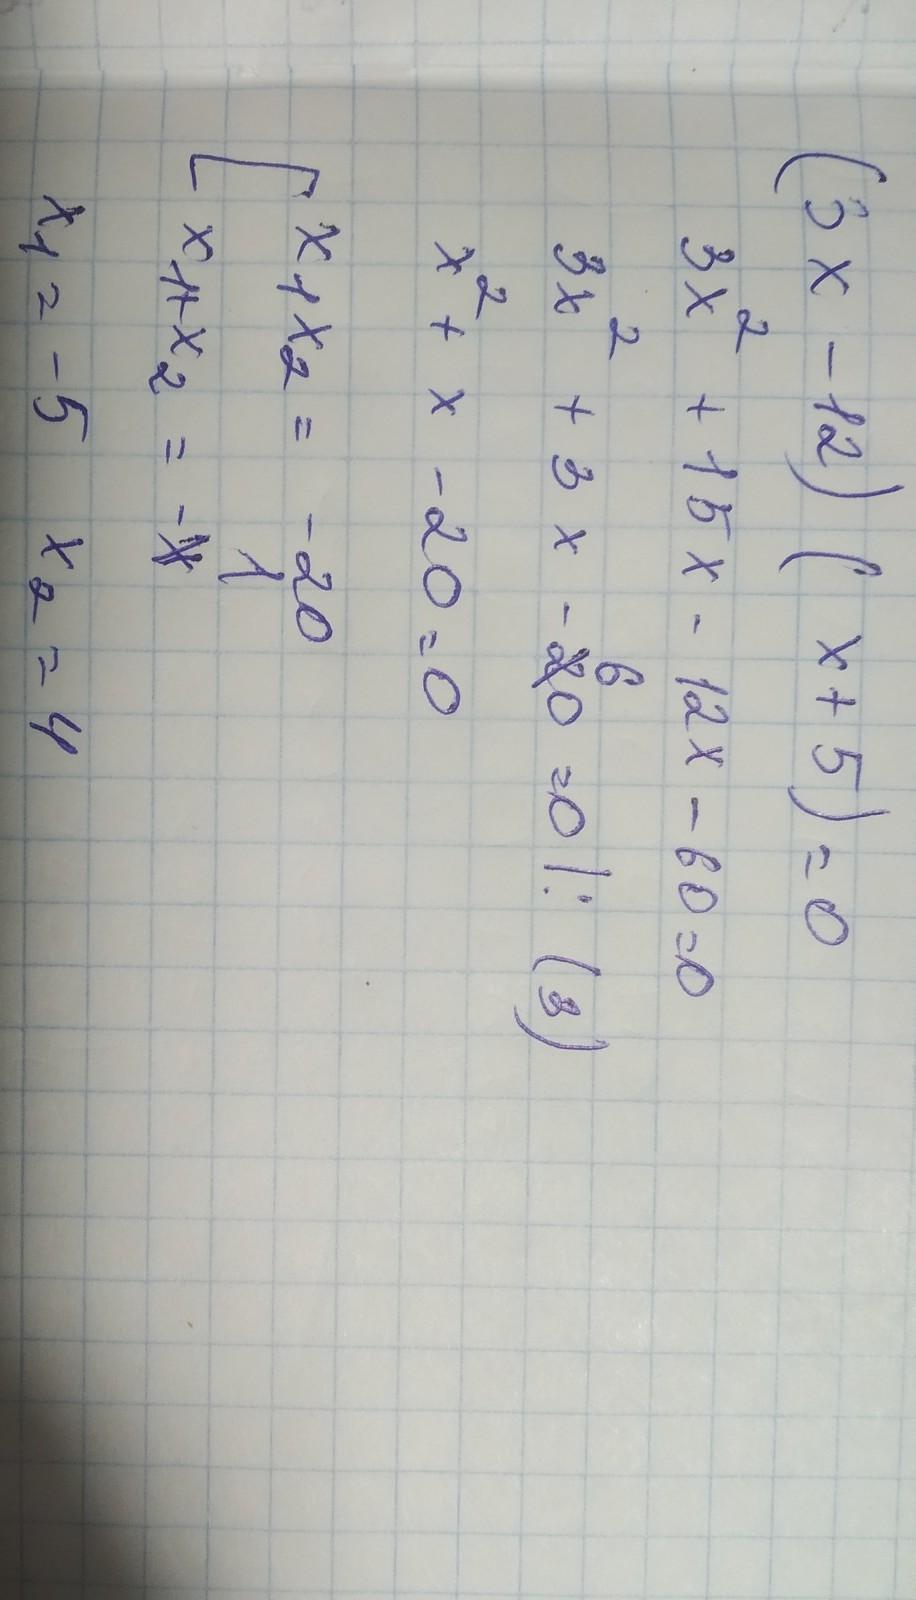 (3x - 12) (x + 5) = 0
3x² + 15x - 12x - 60 = 0
3x² + 3x - 60 = 0 |: (3)
x² + x - 20 = 0
[ x₁x₂ = -20
x₁+x₂ = -1
x₁ = -5 x₂ = 4